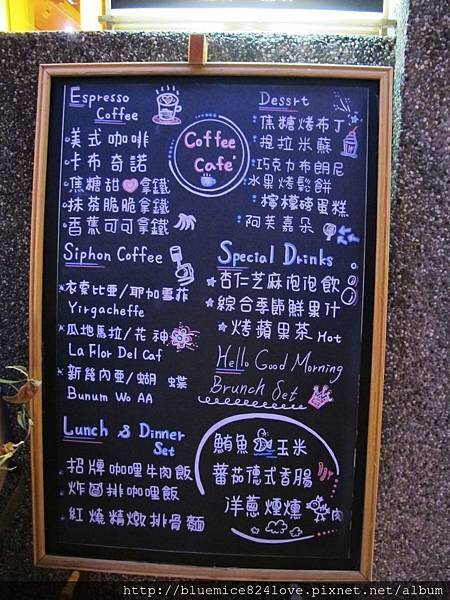 Espresso
Coffee
美式咖啡
卡布奇諾
焦糖甜拿鐵
抹茶脆脆拿鐵
香蕉可可拿鐵
Siphon Coffee
衣索比亞/耶加雪菲
Yirgacheffe
瓜地馬拉/花神
La Flor Del Caf
新幾內亞/蝴蝶
Bunum Wo AA
Lunch & Dinner
Set
招牌咖哩牛肉飯
炸排咖哩飯
紅燒精燉排骨麵
Coffee
Cafe'
Dessrt
焦糖烤布丁
提拉米蘇
巧克力布朗尼
水果烤鬆餅
檸檬磅蛋糕
阿芙嘉朵
Special Drinks
杏仁芝麻泡泡飲
綜合季節鮮果汁
烤蘋果茶 Hot
Hello Good Morning
Brunch Set
鮪魚玉米
蕃茄德式香腸
洋蔥煙燻肉
http://bluemice824love.pixnet.net/album